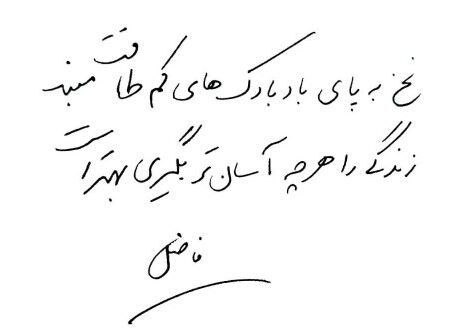 نخ به پای بادبادک های کم طاقت مبند
زندگی را هر چه آسان تر بگیری بهتر است
فاضل